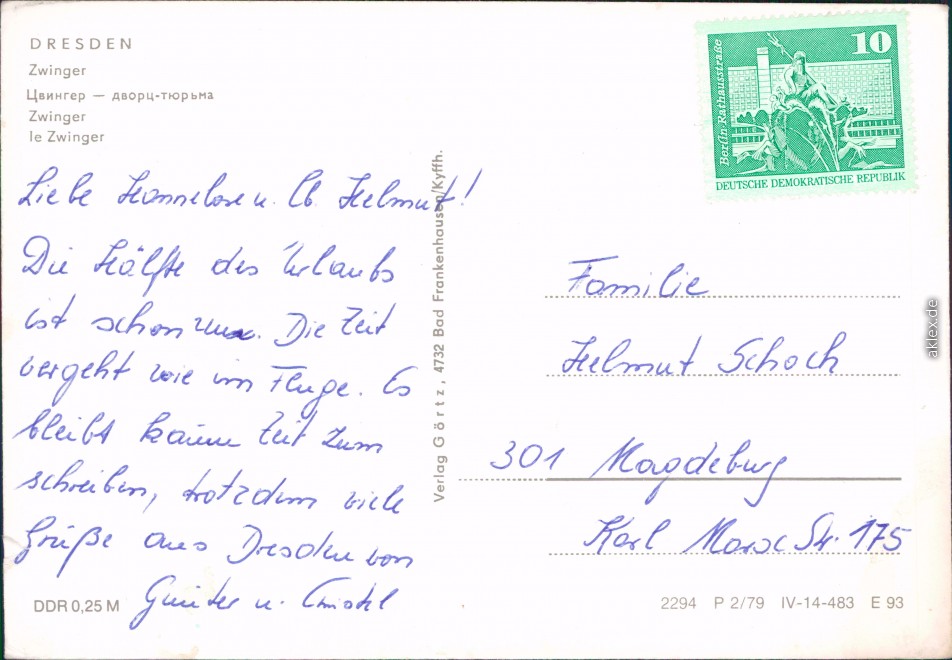 DRESDEN
Zwinger
Цвингер — дворц-тюрьма
Zwinger
le Zwinger
Liebe Hannelore u. lb. Helmut!
Die Hälfte des Urlaubs
ist schon rum. Die Zeit
vergeht wie im Fluge. Es
bleibt kaum Zeit zum
schreiben, trotzdem viele
Grüße aus Dresden von
Günter u. Christel
DDR 0,25 M
Verlag Görtz, 4732 Bad Frankenhausen/Kyffh.
10
Berlin·Rathausstraße
DEUTSCHE DEMOKRATISCHE REPUBLIK
Familie
Helmut Schoch
301 Magdeburg
Karl Marx Str. 175
2294 P 2/79 IV-14-483 E 93
aklex.de